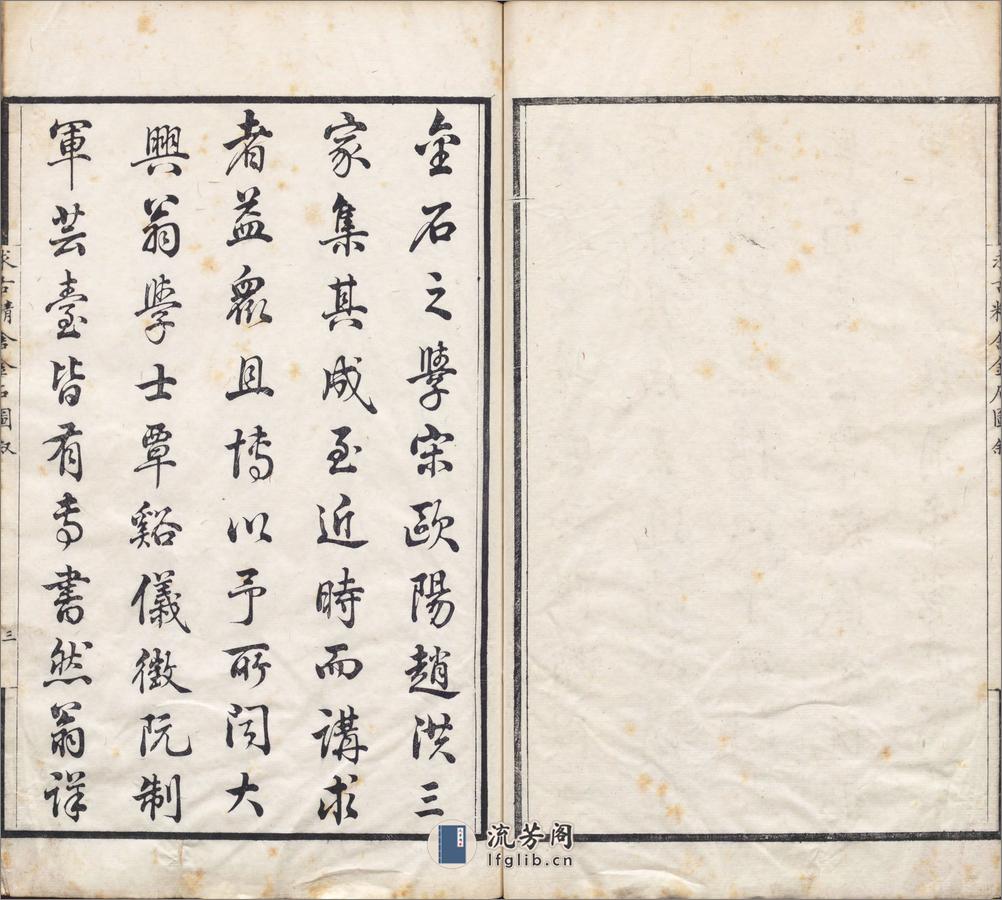 金石之學宋歐陽趙洪三
家集其成至近時而講求
者益眾且博以予所聞大
興翁學士覃谿儀徵阮制
軍芸臺皆有專書然翁詳
求古精舍金石圖敘
三
求古精舍金石圖敘
流芳阁
lfglib.cn